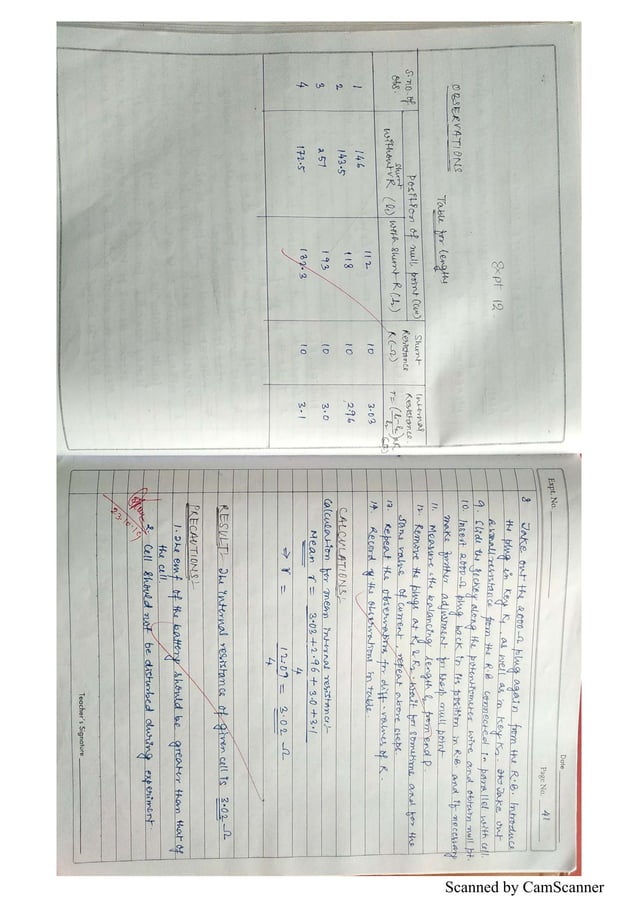 Expt 12
OBSERVATIONS
Table for lengths
S.no. of obs. | Position of null point (cm) | Shunt Resistance R(Ω) | Internal Resistance
without shunt R (l1) | with shunt R (l2) | r = (l1-l2/l2)×R
1 146 112 10 3.03
2 143.5 118 10 2.96
3 251 193 10 3.0
4 172.5 132.3 10 3.1
Expt. No.
Date
Page No. 41
8. Take out the 2000-Ω plug again from the R.B. Introduce
the plug in key K1 as well as in key K2. Take out
resistance from the R.B connected in parallel with cell.
9. Slide the jockey along the potentiometer wire and obtain null pt.
10. Insert 2000-Ω plug back in its position in R.B. and if necessary
make further adjustment for sharp null point
11. Measure the balancing length l2 from end P.
12. Remove the plugs at K1 & K2. Wait for sometime and for the
same value of current, repeat above steps
13. Repeat the observations for diff. values of R.
14. Record of the observations in table
CALCULATIONS:-
Calculation for mean internal resistance:-
Mean r = 3.03+2.96+3.0+3.1
4
⇒ r = 12.09 = 3.02 Ω
4
RESULT: The internal resistance of given cell is 3.02 Ω
PRECAUTIONS:-
1. The emf of the battery should be greater than that of
the cell.
2. Cell should not be disturbed during experiment
Teacher's Signature
Scanned by CamScanner